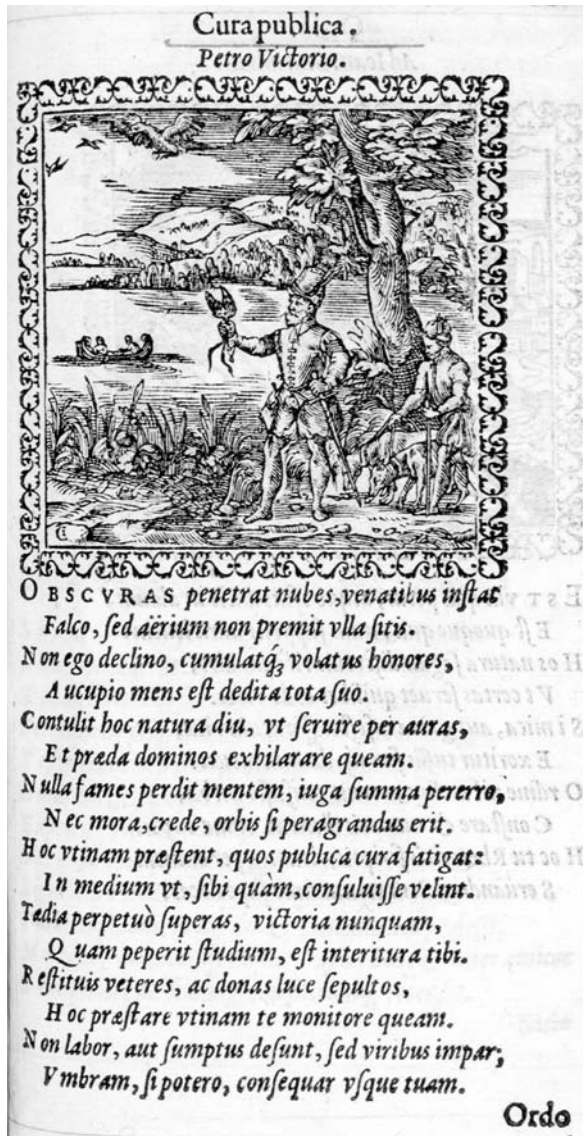 Cura publica.
Petro Victorio.
OBSCVRAS penetrat nubes, venatibus instat
Falco, sed aërium non premit vlla sitis.
Non ego declino, cumulatq́; volatus honores,
Aucupio mens est dedita tota suo.
Contulit hoc natura diu, vt seruire per auras,
Et præda dominos exhilarare queam.
Nulla fames perdit mentem, iuga summa pererro,
Nec mora, crede, orbis si peragrandus erit.
Hoc vtinam præstent, quos publica cura fatigat:
In medium vt, sibi quàm, consuluisse velint.
Tædia perpetuò superas, victoria nunquam,
Quam peperit studium, est interitura tibi.
Restituis veteres, ac donas luce sepultos,
Hoc præstare vtinam te monitore queam.
Non labor, aut sumptus desunt, sed viribus impar;
Vmbram, si potero, consequar vsque tuam.
Ordo